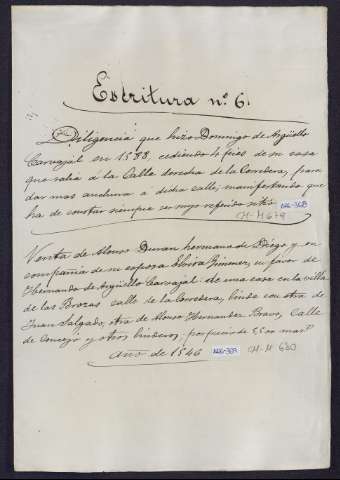 Escritura nº 6.
Diligencia que hizo Domingo de Argüello
Carvajal en 1588, cediendo 4 pies de su casa
que salia á la Calle derecha de la Corredera, para
dar mas anchura á dicha calle; manifestando que
ha de constar siempre ser suyo referido sitio
CH-M 679
Venta de Alonso Duran hermano de Diego y en
compañia de su esposa Elvira Gimenez, en favor de
Hernando de Argüello Carvajal de una casa en la villa
de las Brozas calle de la Corredera, linde con otra de
Juan Salgado, otra de Alonso Hernandez Bravo, Calle
de Concejo y otros linderos; por precio de
año de 1546 CH-M 680